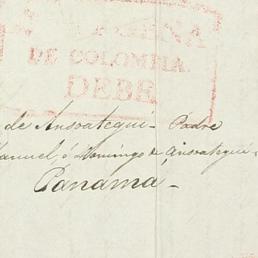 DE COLOMBIA.
DEBE
de Ansoategui - Padre
Manuel, ó Domingo de Ansoategui -
Panamá -